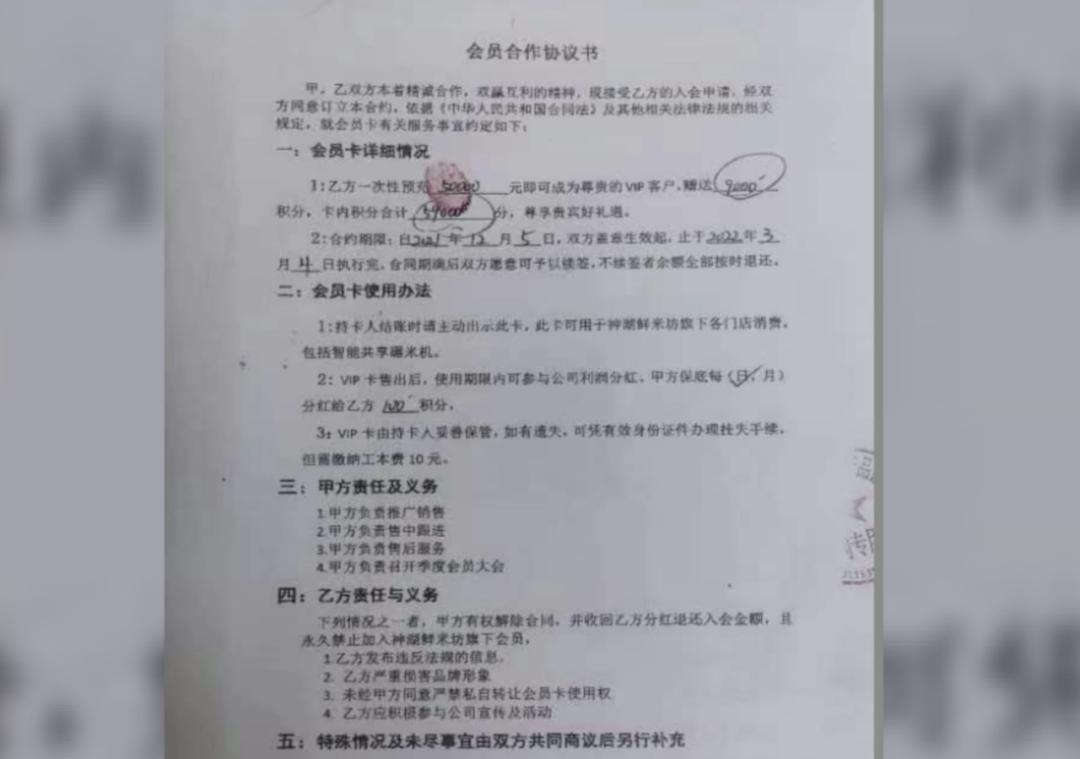 会员合作协议书
甲，乙双方本着精诚合作，双赢互利的精神，现接受乙方的入会申请，经双
方同意订立本合约，依据《中华人民共和国合同法》及其他相关法律法规的相关
规定，就会员卡有关服务事宜约定如下：
一：会员卡详细情况
1：乙方一次性预充 50000 元即可成为尊贵的 VIP 客户，赠送 9000
积分，卡内积分合计 59000 分，尊享贵宾好礼遇。
2：合约期限：自2021年 12 月 5 日，双方盖章生效起，止于2022年 3
月 4 日执行完，合同期满后双方愿意可予以续签，不续签者余额全部按时退还。
二：会员卡使用办法
1：持卡人结账时请主动出示此卡，此卡可用于神湖鲜米坊旗下各门店消费，
包括智能共享碾米机。
2：VIP 卡售出后，使用期限内可参与公司利润分红，甲方保底每（日，月）
分红给乙方 100 积分。
3：VIP 卡由持卡人妥善保管，如有遗失，可凭有效身份证件办理挂失手续，
但需缴纳工本费 10 元。
三：甲方责任及义务
1.甲方负责推广销售
2.甲方负责售中跟进
3.甲方负责售后服务
4.甲方负责召开季度会员大会
四：乙方责任与义务
下列情况之一者，甲方有权解除合同，并收回乙方分红退还入会金额，且
永久禁止加入神湖鲜米坊旗下会员，
1.乙方发布违反法规的信息.
2. 乙方严重损害品牌形象
3. 未经甲方同意严禁私自转让会员卡使用权
4. 乙方应积极参与公司宣传及活动
五：特殊情况及未尽事宜由双方共同商议后另行补充